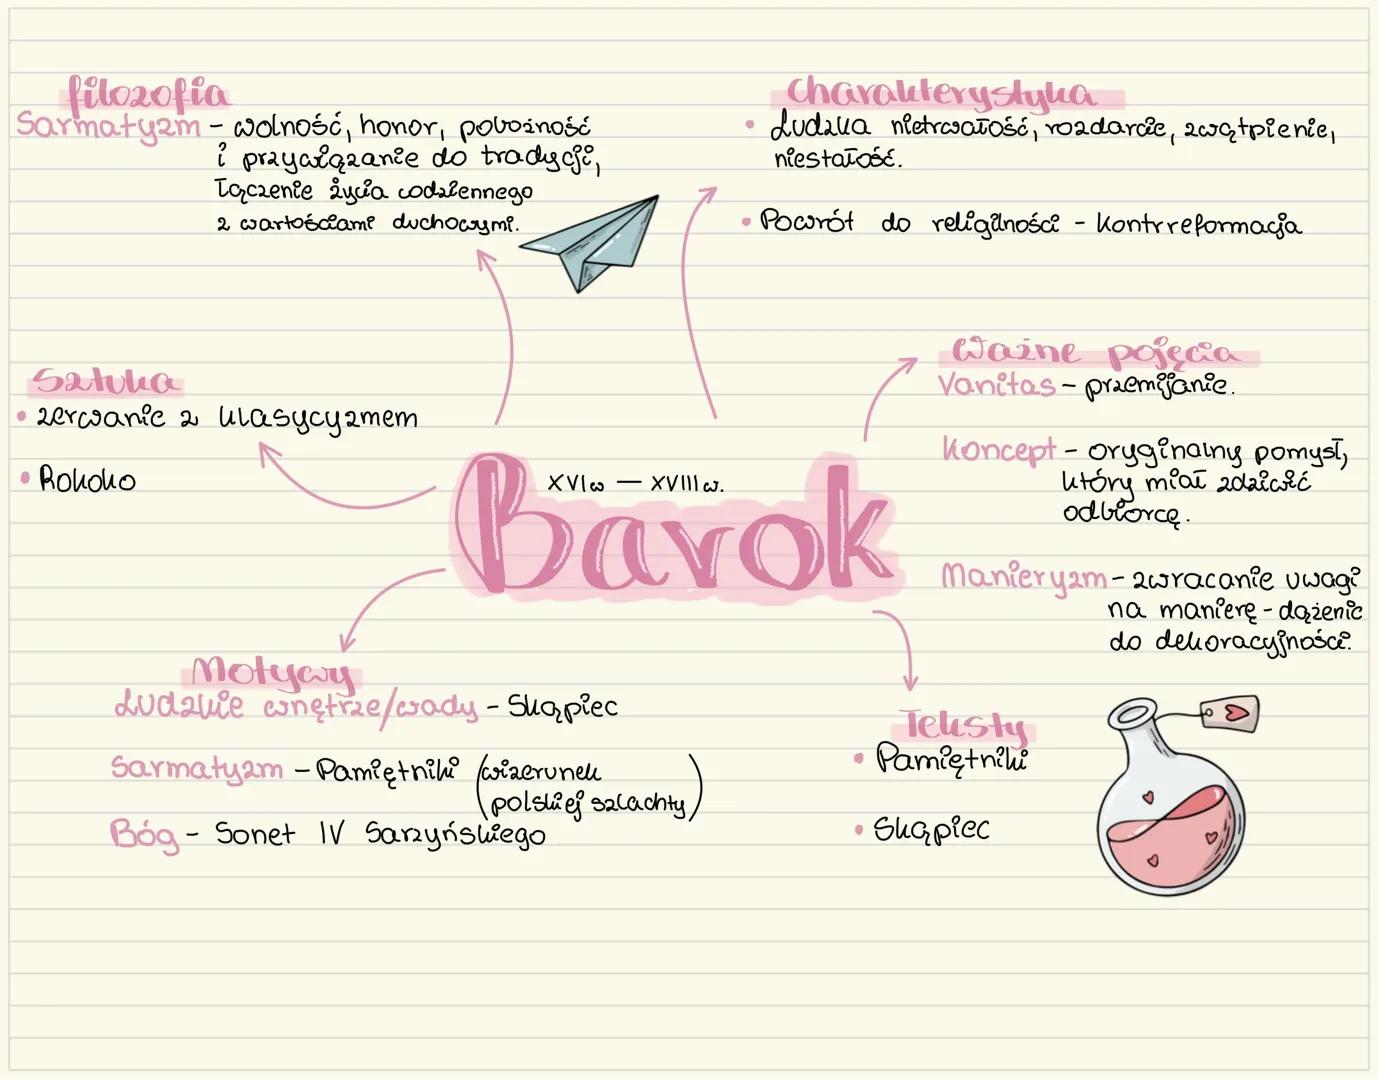 filozofia
Sarmatyzm - wolność, honor, pobożność
i przywiązanie do tradycji,
łączenie życia codziennego
z wartościami duchowymi.
Charakterystyka
• Ludzka nietrwałość, rozdarcie, zwątpienie,
niestałość.
• Powrót do religijności - kontrreformacja
Sztuka
• zerwanie z klasycyzmem
• Rokoko
XVIw — XVIIIw.
Barok
Ważne pojęcia
Vanitas - przemijanie.
Koncept - oryginalny pomysł,
który miał zdziwić
odbiorcę.
Manieryzm - zwracanie uwagi
na manierę - dążenie
do dekoracyjności.
Motywy
Ludzkie wnętrze/wady - Skąpiec
Sarmatyzm - Pamiętniki (wizerunek
polskiej szlachty)
Bóg - Sonet IV Sarzyńskiego
Teksty
• Pamiętniki
• Skąpiec